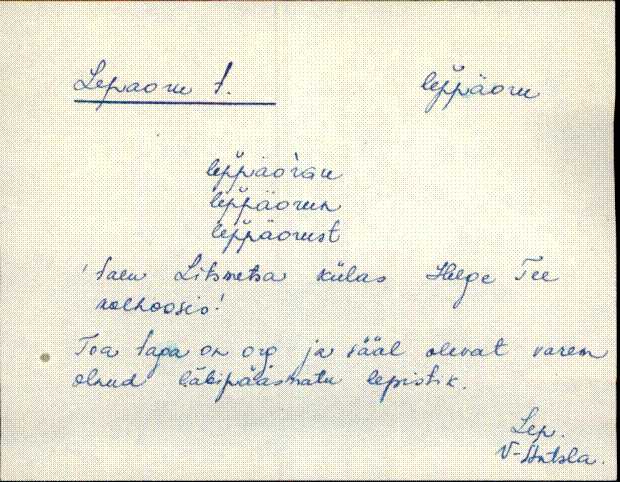 Lepaoru t. lep̆päoru
lep̆päo'rau
lep̆päorun
lep̆päorust
'talu Litsmetsa külas Helge Tee
kolhoosis!
Toa taga on org ja sääl olevat varem
olnud läbipääsmatu lepistik.
Lep.
V-Antsla.